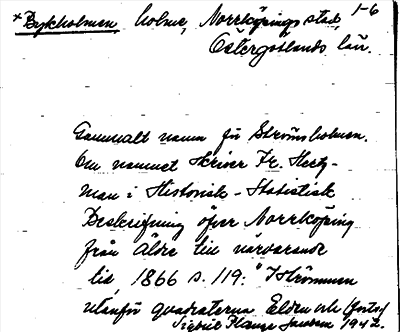 *Bykholmen, holme, Norrköpings stad, 1-6
Östergötlands län.
Gammalt namn för Strömsholmen.
Om namnet skriver Fr. Hertz-
man i Historisk-Statistisk
Beskrifning öfver Norrköping
från äldre till närvarande
tid, 1866 s. 119: "I strömmen
utanför quadraterna Elden och (forts.)
Sigurd 1942.